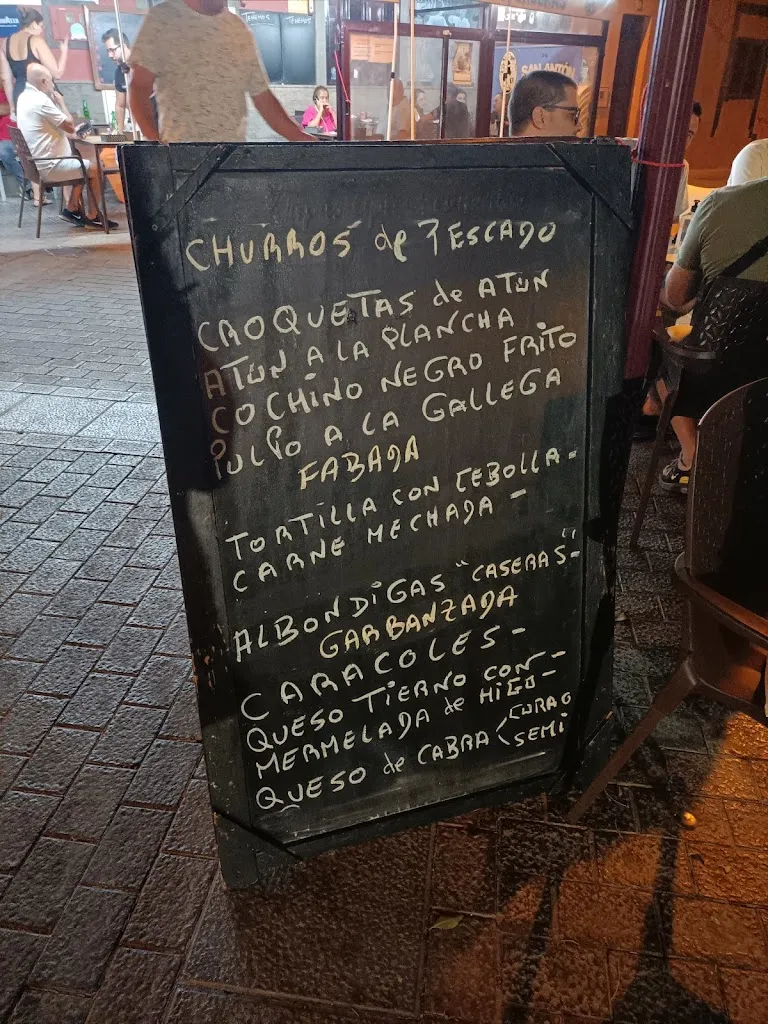 SAN ANTÓN
CHURROS de PESCADO
CROQUETAS de ATUN
ATUN A LA PLANCHA
COCHINO NEGRO FRITO
PULPO A LA GALLEGA
FABADA
TORTILLA CON CEBOLLA-
CARNE MECHADA -
ALBONDIGAS "CASERAS"-
GARBANZADA
CARACOLES-
QUESO TIERNO CON-
MERMELADA de HIGO-
QUESO de CABRA < CURAO
SEMI